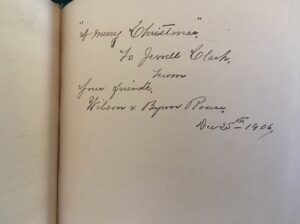 "A merry Christmas"
to Jewell Clark,
from
your friends,
Wilson & Byron Rouse,
Dec 25th 1906.